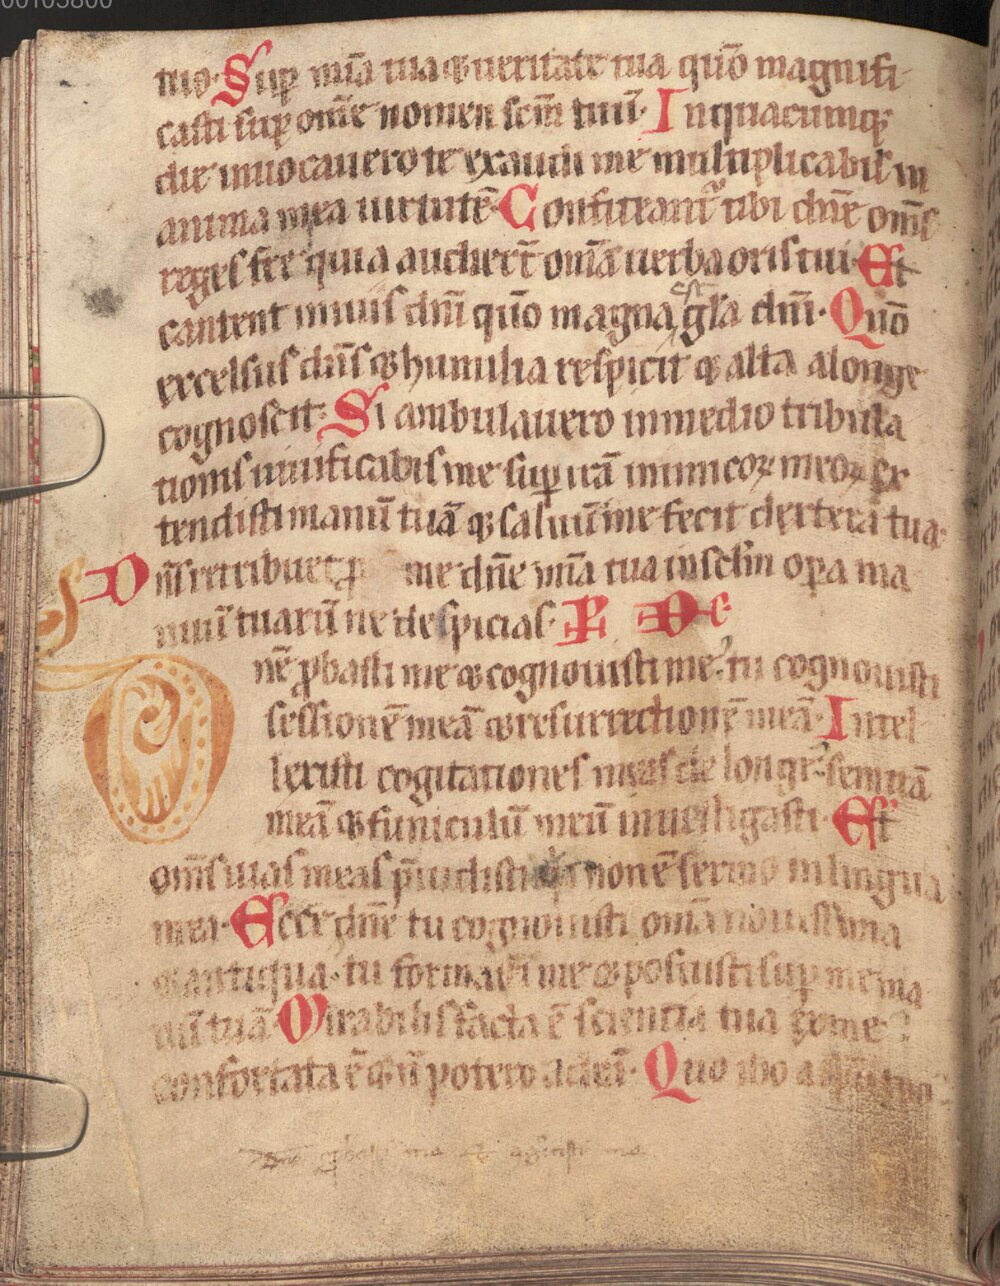 00105800
tuo· Sup̱ mīa tua ⁊ ueritate tua quō magnifi
casti sup̱ om̄e nomen sc̄m tuū· Inquacumq;
die inuocauero te exaudi me multiplicabis in
anima mea uirtutē· Confiteant᷑ tibi dn̄e om̄s
reges tr̄e quia audierūt om̄a uerba oris tui· Et
cantent in uiis dn̄i quō magna est gl̄a dn̄i· Quō
excelsus dn̄s ⁊ humilia respicit ⁊ alta alonge
cognoscit· Si ambulauero inmedio tribula
tionis uiuificabis me sup̱ irā inimicoꝝ meoꝝ ex
tendisti manū tuā ⁊ saluū me fecit dextera tua·
Dn̄s retribuet ꝓ me dn̄e mīa tua in sc̄lm op̱a ma
nuū tuarū ne despicias· D
nē ꝓbasti me ⁊ cognouisti me· tu cognouisti
sessionē meā ⁊ resurrectionē meā· Intel
lexisti cogitationes meas de longe· semitā
meā ⁊ funiculū meū inuestigasti· Et
om̄s uias meas p̄uidisti q̄a non ē sermo in lingua
mea· Ecce dn̄e tu cognouisti om̄a nouissima
⁊ antiqua· tu formasti me ⁊ posuisti sup̱ me ma
nū tuā· Mirabilis facta ē scientia tua ex me
confortata ē ⁊ n̄ potero ad eā· Quo ibo a sp̄u tuo
ꝓbasti me ⁊ me